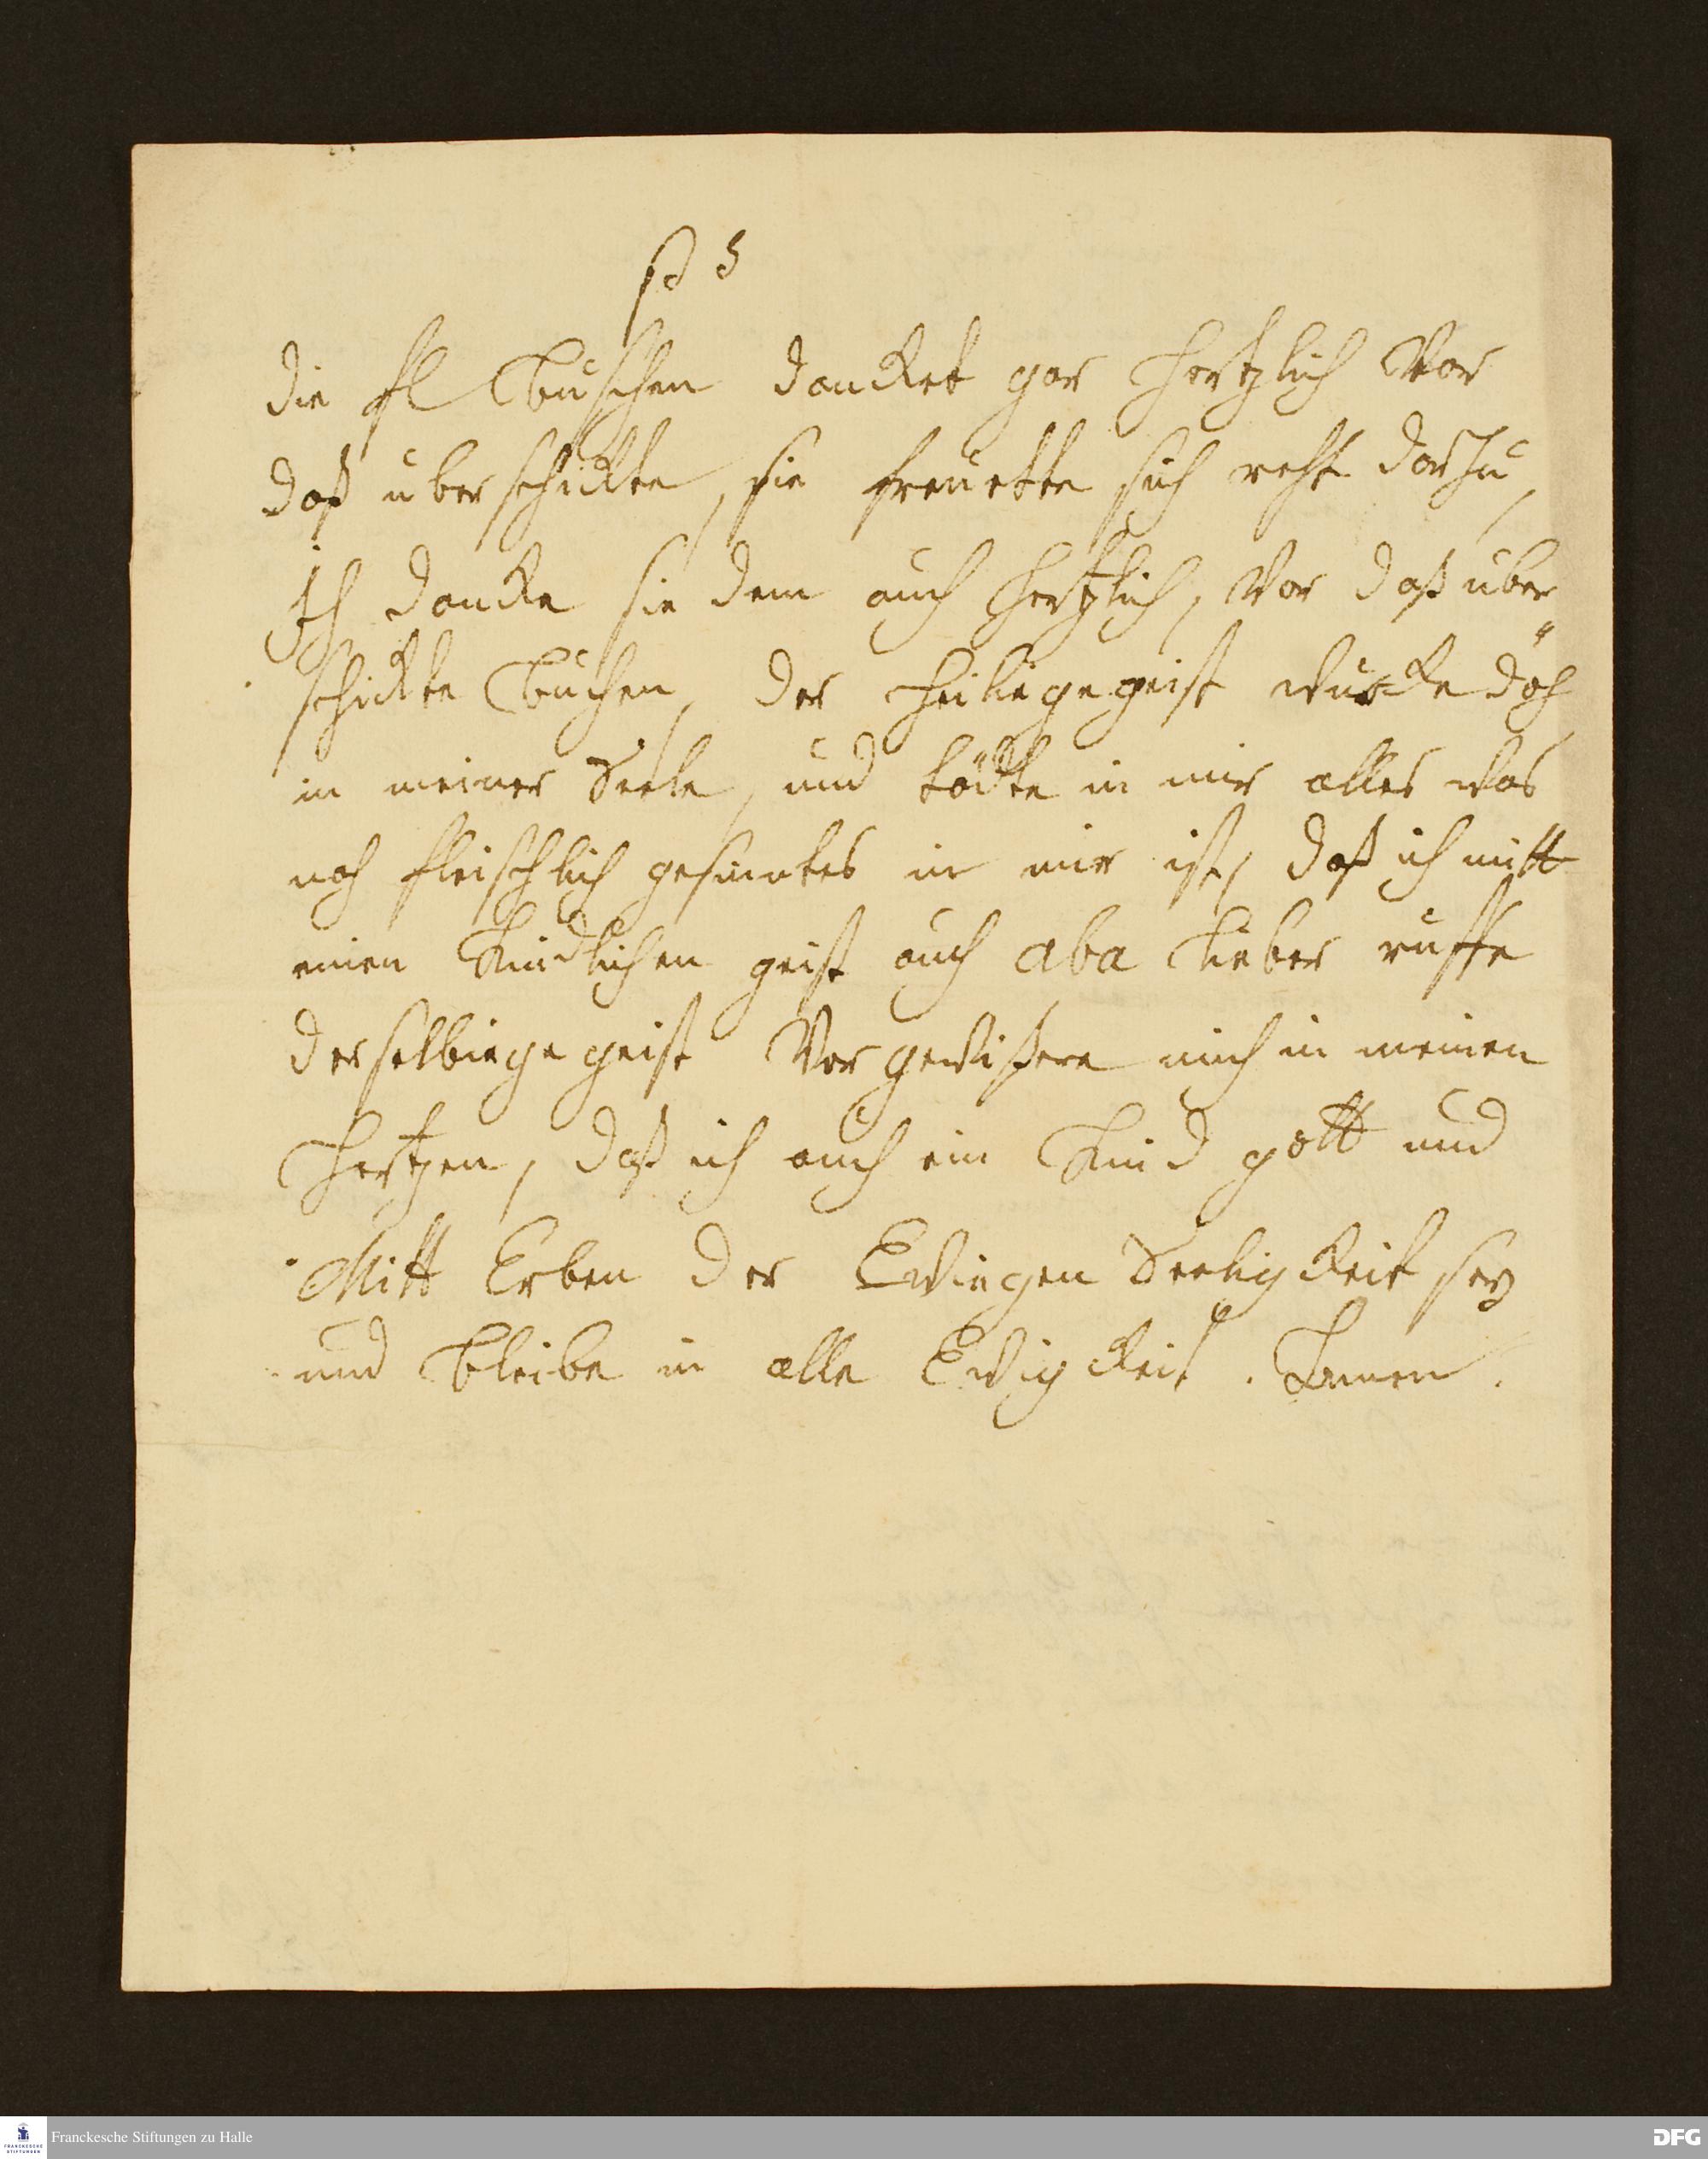 PS
die fl Buschen dancket gar Hertzlich Vor
daß uber schickte, sie freuette sich recht darzu,
Ich dancke sie dem auch Hertzlich, Vor daß uber
schickte Buchen, der Heiliegegeist wurcke doch
in meiner Seele, und tödte in mir alles was
noch fleischlich gesinntes in mir ist, daß ich mitt
einen Kindlichen geist auch aba Lieber ruffe
derselbiege geist Vor gewißere mich in meinen
Hertzen, daß ich auch ein Kind gott und
Mitt Erben der Ewiegen Seeligkeit sey
und bleibe in alle Ewigkeit. Amen.
Franckesche Stiftungen zu Halle
DFG